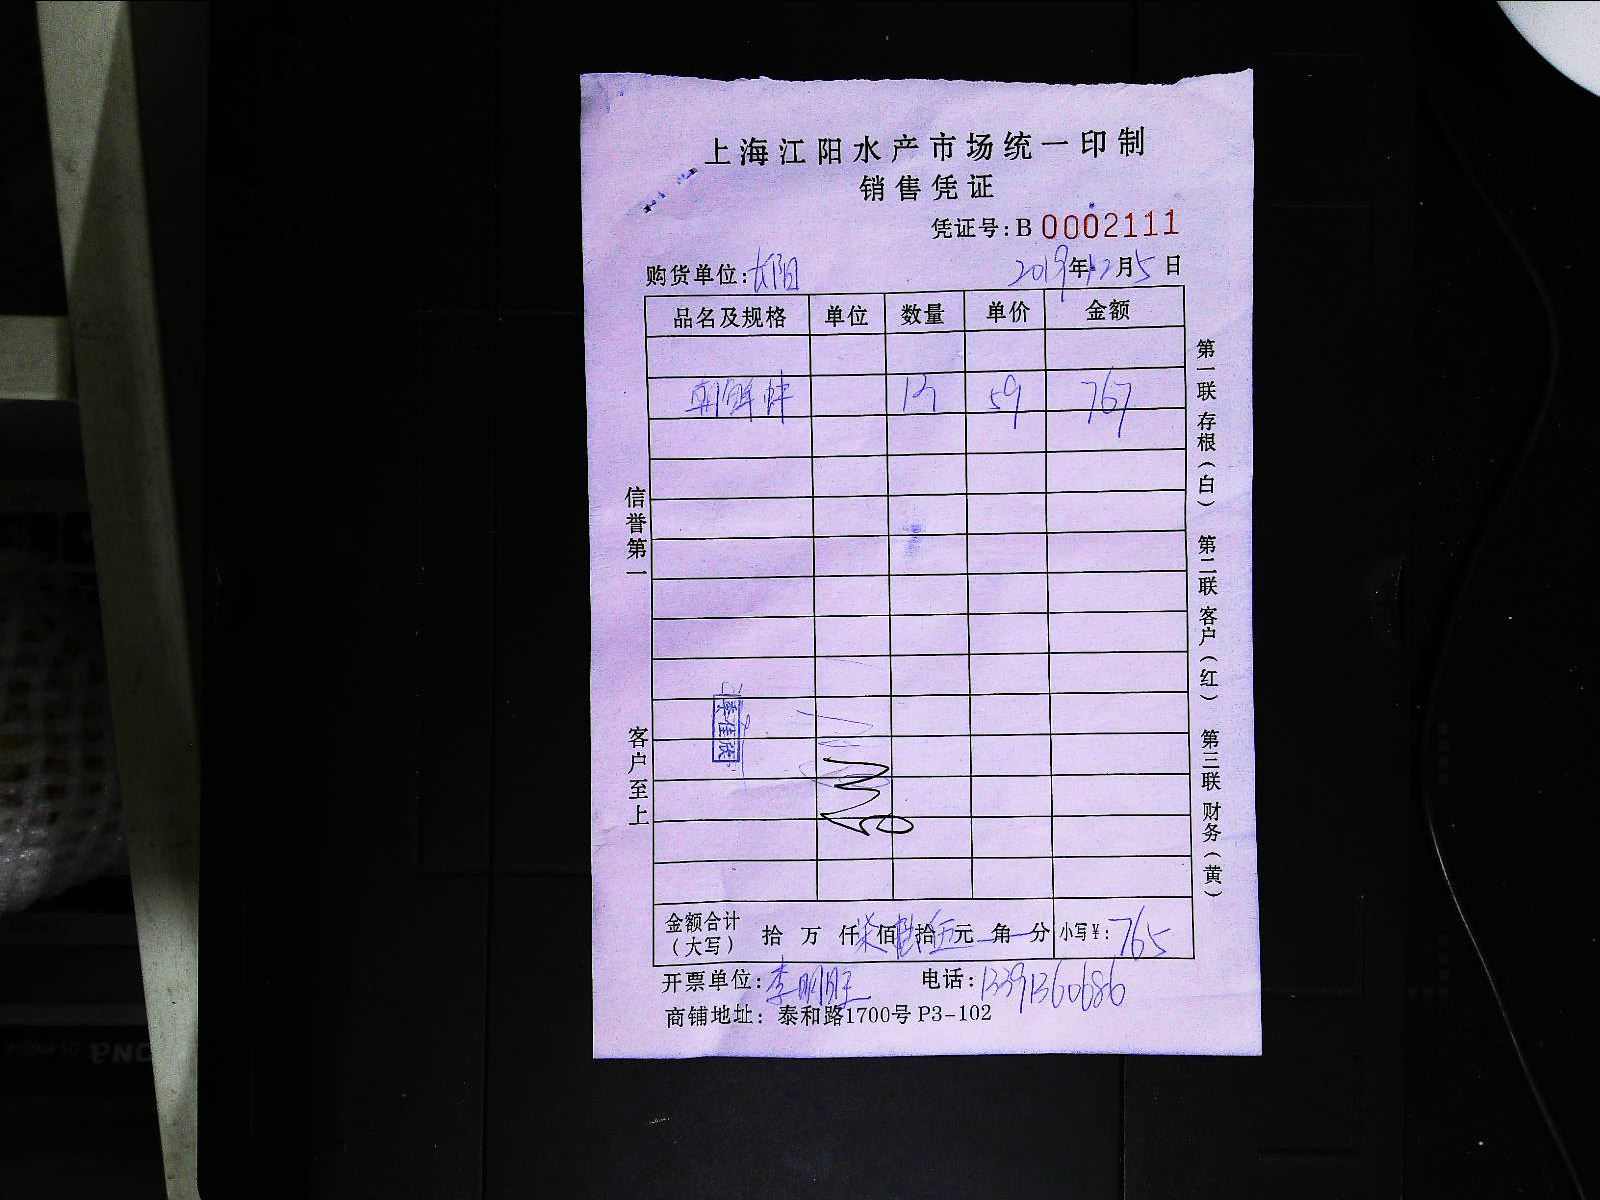 上海江阳水产市场统一印制
销售凭证
凭证号: B 0002111
购货单位: 长阳
2019年12月5日
品名及规格 单位 数量 单价 金额
朝鲜蚌 13 59 767
信誉第一
客户至上
第一联 存根(白) 第二联 客户(红) 第三联 财务(黄)
李佳欣
金额合计(大写) 拾 万 仟 柒佰 陆拾 伍元 角 分 小写¥: 765
开票单位: 李明旺 电话: 13391360686
商铺地址: 泰和路1700号 P3-102